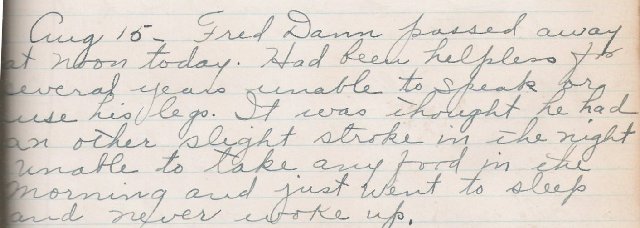 Aug 15 - Fred Dann passed away
at noon today. Had been helpless for
several years unable to speak or
use his legs. It was thought he had
an other slight stroke in the night
unable to take any food in the
morning and just went to sleep
and never woke up.